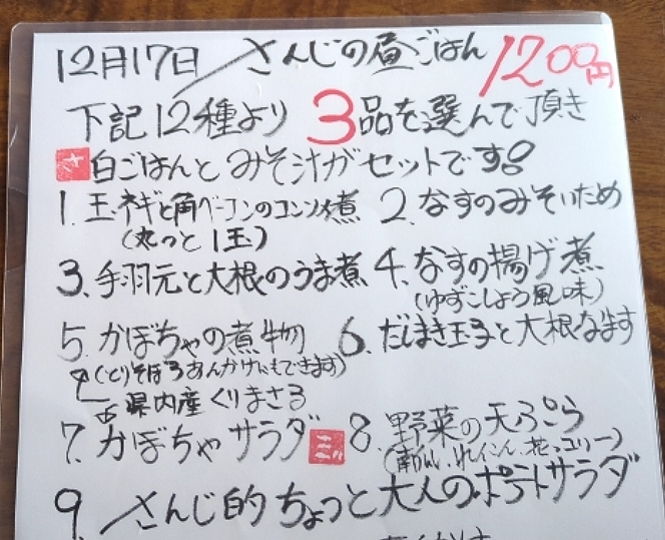 12月17日 さんじの昼ごはん 1200円
下記12種より 3品を選んで頂き
白ごはんと みそ汁が セットです
1. 玉ネギと角ベーコンのコンソメ煮 2. なすのみそいため
(丸っと1玉)
3. 手羽元と大根のうま煮 4. なすの揚げ煮
(ゆずこしょう風味)
5. かぼちゃの煮物 6. だしまき玉子と大根なます
(とりそぼろあんかけにもできます)
県内産 くりまさる
7. かぼちゃサラダ 8. 野菜の天ぷら
9. さんじ的 ちょっと大人のポテトサラダ